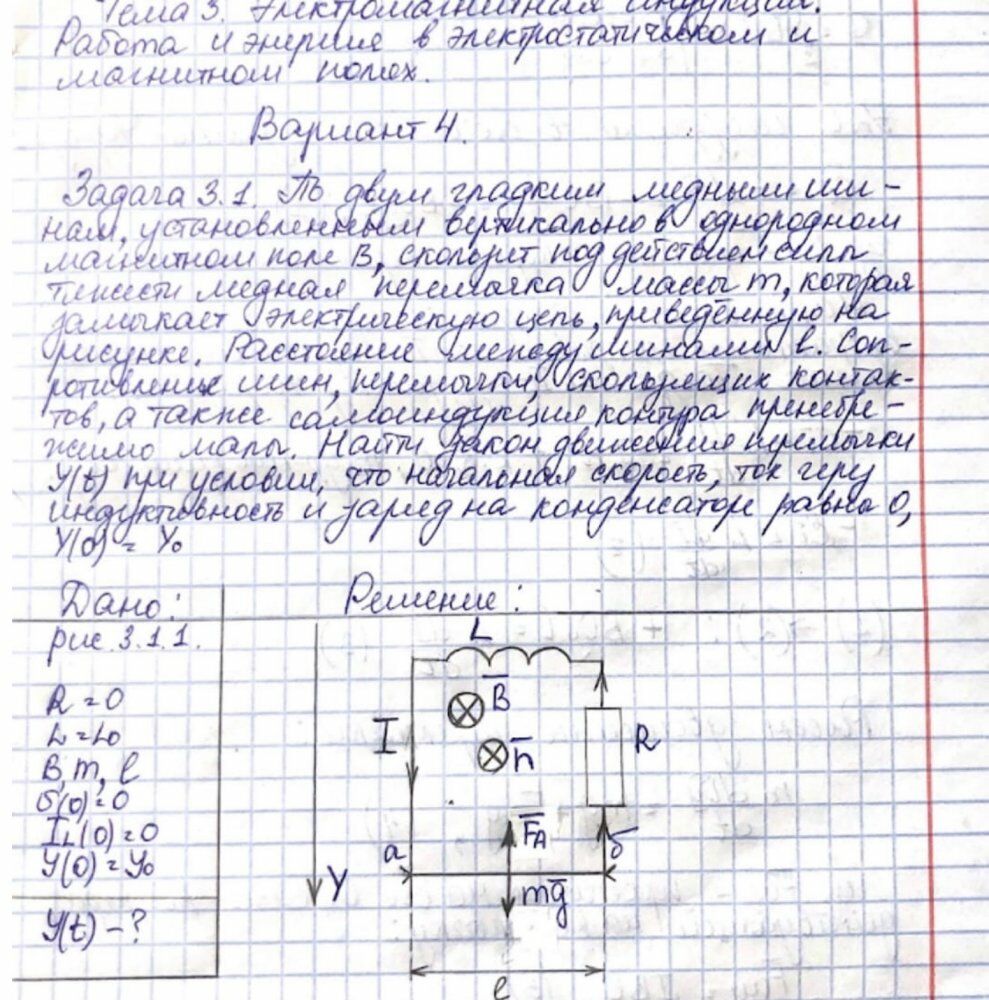 Тема 3. Электромагнитная индукция.
Работа и энергия в электростатическом и
магнитном полях.
Вариант 4.
Задача 3.1. По двум гладким медным ши-
нам, установленным вертикально в однородном
магнитном поле В, скользит под действием силы
тяжести медная перемычка массы m, которая
замыкает электрическую цепь, приведённую на
рисунке. Расстояние между шинами l. Соп-
ротивление шин, перемычки, скользящих контак-
тов, а также самоиндукция контура пренебре-
жимо малы. Найти закон движения перемычки
У(t) при условии, что начальная скорость, ток через
индуктивность и заряд на конденсаторе равны 0,
У(0) = У₀
Дано:
Решение:
рис. 3.1.1.
R = 0
L = L₀
B, m, l
υ(0) = 0
I_L(0) = 0
У(0) = У₀
У(t) - ?
L
B
I
n
R
F_A
а
б
У
mg
l